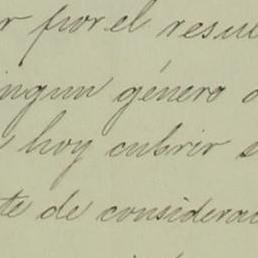 r por el resul
ingun género d
hoy cubrir s
te de considerac